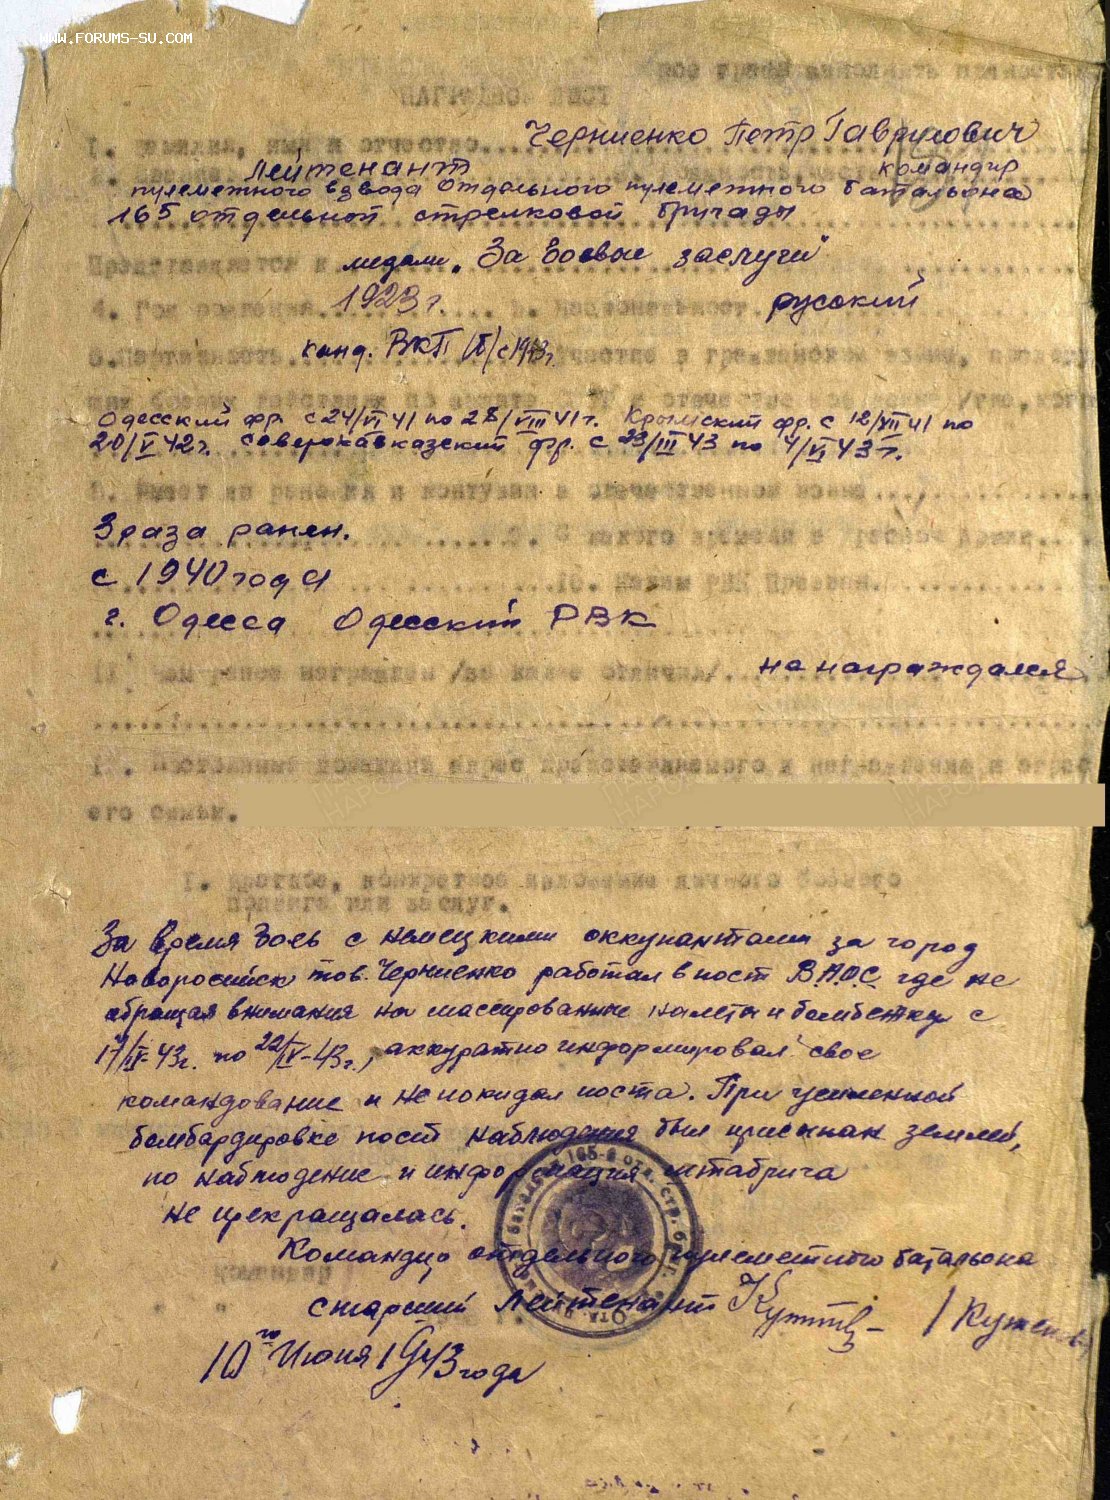 WWW.FORUMS-SU.COM
НАГРАДНОЙ ЛИСТ
1. Фамилия, имя и отчество Черниенко Петр Гаврилович
Лейтенант командир
пулеметного взвода Отдельного пулеметного батальона
165 отдельной стрелковой бригады
Представляется к медали „За боевые заслуги"
4. Год рождения 1923 г. 5. Национальность русский
6. Партийность канд. ВКП(б) с 1943 г. Участие в гражданской войне,
Одесский фр. с 24/VI 41 по 28/VIII 41 г. Крымский фр. с 12/XII 41 по
20/V 42 г. Северокавказский фр. с 23/III 43 по 4/VI 43 г.
8. Имеет ли ранения и контузии в отечественной войне
3 раза ранен. 9. С какого времени в Красной Армии
с 1940 года 10. Каким РВК призван.
г. Одесса Одесский РВК
11. Чем ранее награжден /за какие отличия/ на награждался
12. Постоянный домашний адрес представляемого к награждению и адрес
его семьи.
I. Краткое, конкретное изложение личного боевого
подвига или заслуг.
За время боев с немецкими оккупантами за город
Новоросийск тов. Черниенко работал в пост В.Н.О.С. где не
обращая внимания на массированные налеты и бомбежку с
17/IV-43г. по 22/IV-43г., аккуратно информировал свое
командование и не покидал поста. При усиленной
бомбардировке пост наблюдения был присыпан землей,
но наблюдение и информация штабрига
не прекращалась.
Командир отдельного пулеметного батальона
старший лейтенант
10го Июня 1943 года